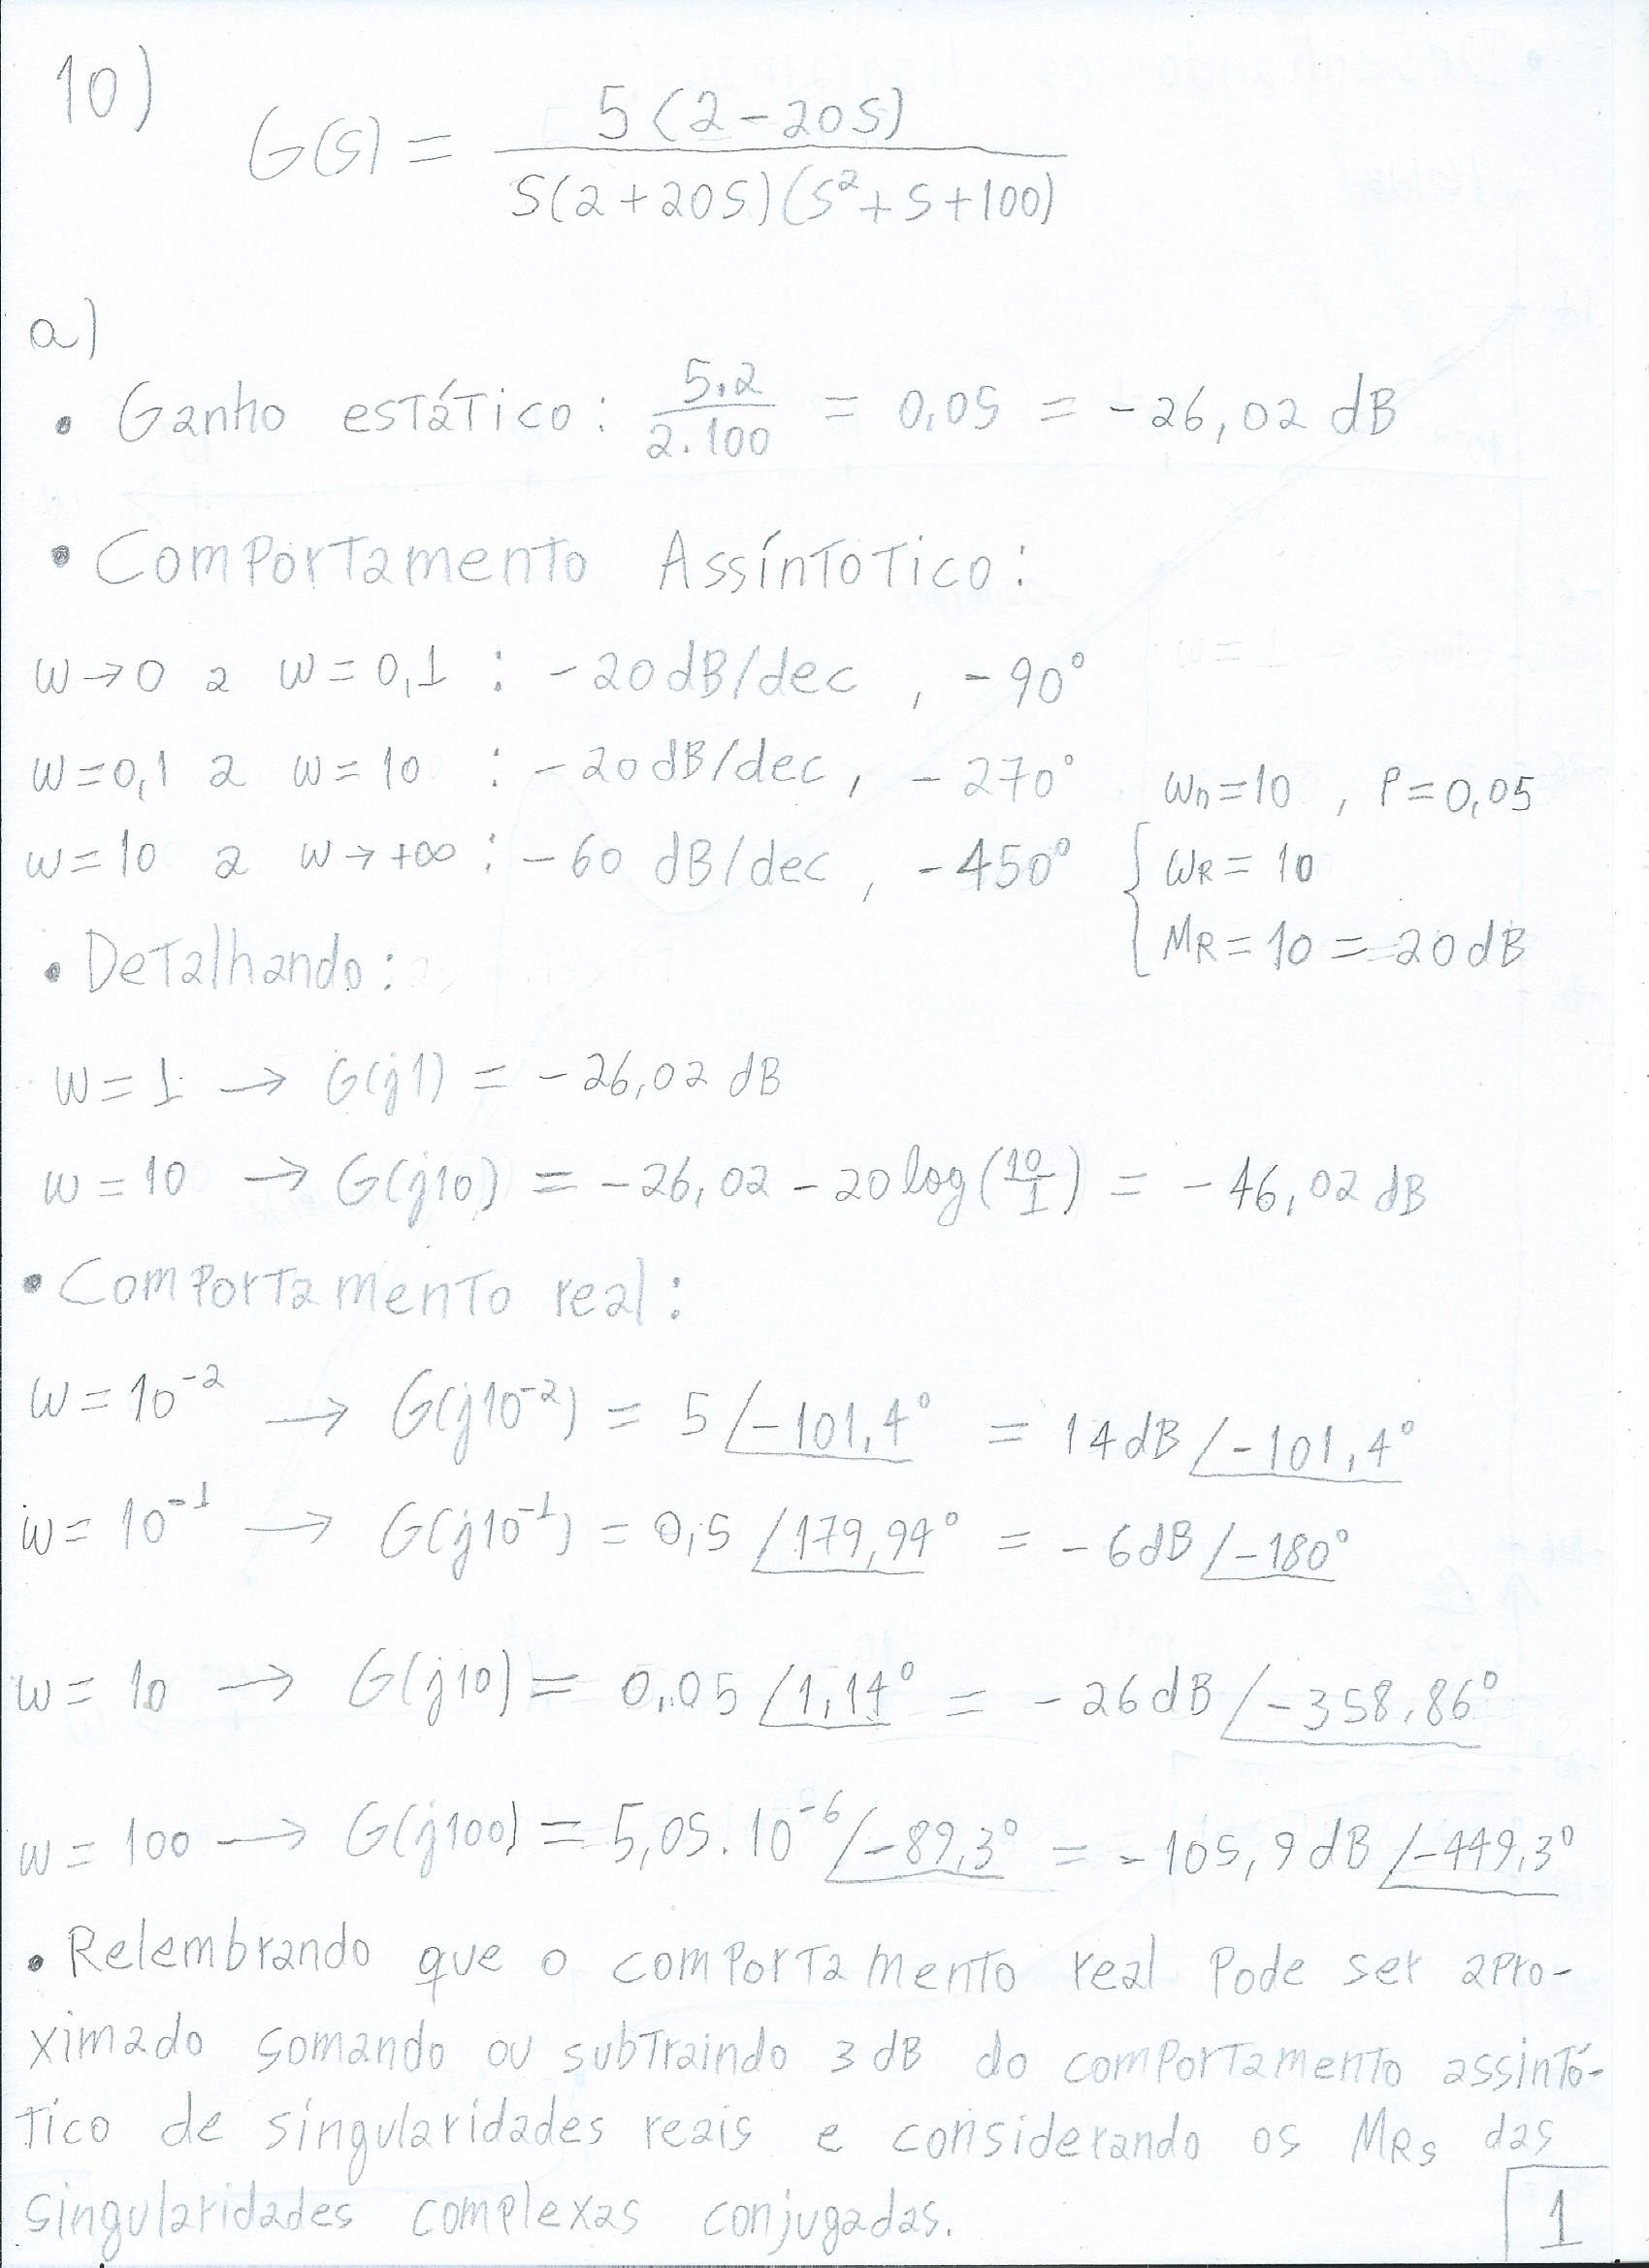 10)
G(s) = 5(2-20s) / s(2+20s)(s²+s+100)
a)
• Ganho estático: 5.2 / 2.100 = 0,05 = -26,02 dB
• Comportamento Assíntotico:
w→0 a w=0,1 : -20dB/dec , -90°
w=0,1 a w=10 : -20dB/dec, -270°
wn=10 , ρ=0,05
w=10 a w→+∞ : -60 dB/dec, -450°
{ wR = 10
MR=10 = 20dB
• Detalhando:
w=1 → G(j1) = -26,02 dB
w=10 → G(j10) = -26,02 -20log(10/1) = -46,02 dB
• Comportamento real:
w=10⁻² → G(j10⁻²) = 5 /-101,4° = 14dB /-101,4°
w=10⁻¹ → G(j10⁻¹) = 0,5 /179,94° = -6dB /-180°
w=10 → G(j10) = 0,05 /1,14° = -26dB /-358,86°
w=100 → G(j100) = 5,05.10⁻⁶ /-89,3° = -105,9dB /-449,3°
• Relembrando que o comportamento real pode ser apro-
ximado somando ou subtraindo 3dB do comportamento assintó-
tico de singularidades reais e considerando os MRs das
singularidades complexas conjugadas.
1